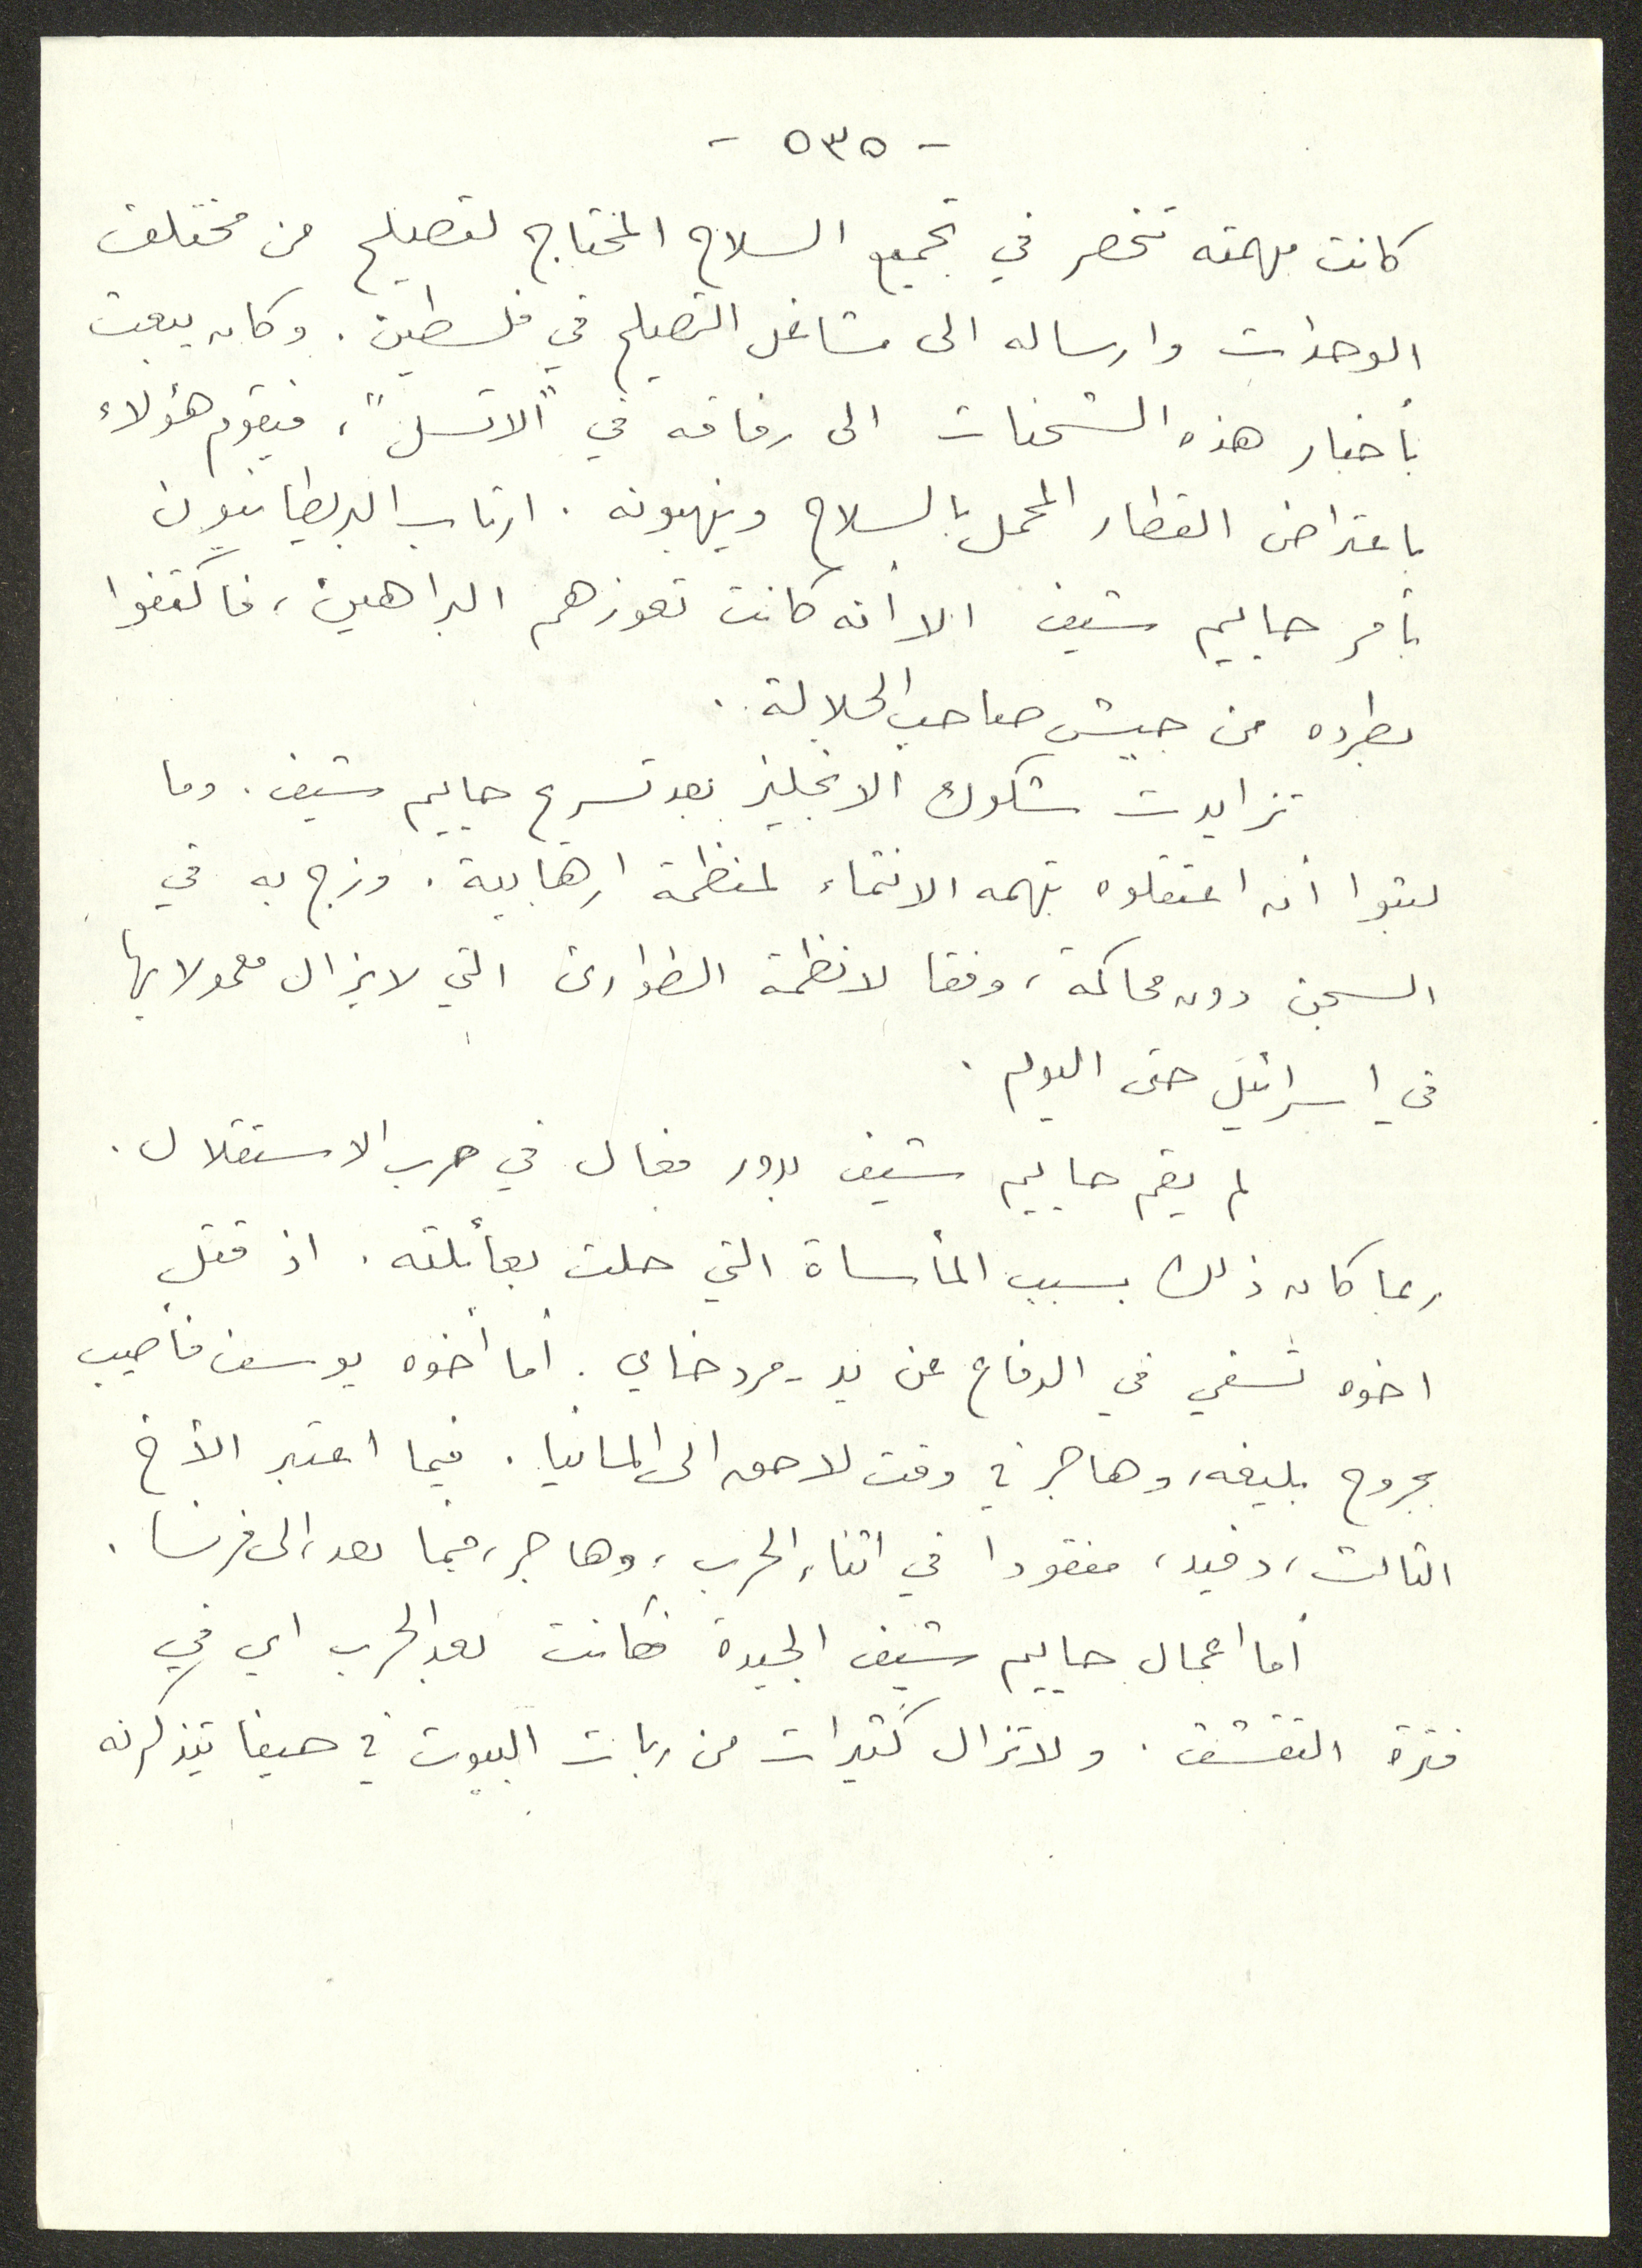 - ٥٣٥ -
كانت مهمته تنحصر في تجميع السلاح المحتاج لتصليح من مختلف
الوحدات وارساله الى مشاغل التصليح في فلسطين. وكان يبعث
بأخبار هذه الشحنات الى رفاقه في "الاتسل"، فيقوم هؤلاء
باعتراض القطار المحمل بالسلاح وينهبونه. ارتاب البريطانيون
بأمر حاييم شيف الا أنه كانت تعوزهم البراهين، فاكتفوا
بطرده من جيش صاحب الجلالة.
تزايدت شكوك الانجليز بعد تسريح حاييم شيف. وما
لبثوا أن اعتقلوه بتهمه الانتماء لمنظمة ارهابية. وزج به في
السجن دون محاكمة، وفقا لانظمة الطوارئ التي لا يزال معمولا بها
في اسرائيل حتى اليوم.
لم يقم حاييم شيف بدور فعال في حرب الاستقلال.
ربما كان ذلك بسبب المأساة التي حلت بعائلته. اذ قتل
اخوه تسفي في الدفاع عن يد-مردخاي. أما أخوه يوسف فأصيب
بجروح بليغه، وهاجر في وقت لاحق الى المانيا. فيما اعتبر الأخ
الثالث، دفيد، مفقودا في اثناء الحرب، وهاجر، فيما بعد، الى فرنسا.
أما اعمال حاييم شيف الجيدة فكانت بعد الحرب اي في
فترة التقشف. ولا تزال كثيرات من ربات البيوت في حيفا يتذكرنه